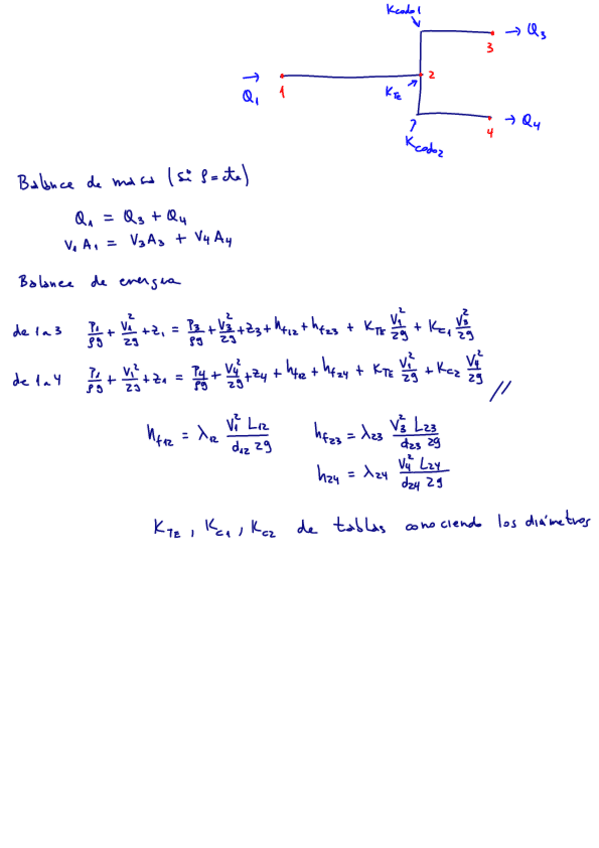 Kcodo1
→ Q3
3
→
Q1
1
2
KTE
→ Q4
4
Kcodo2
Balance de masa (si ρ=cte)
Q1 = Q3 + Q4
V1 A1 = V3 A3 + V4 A4
Balance de energia
de 1 a 3 P1/ρg + V1²/2g + z1 = P3/ρg + V3²/2g + z3 + hf12 + hf23 + KTE V1²/2g + KC1 V3²/2g
de 1 a 4 P1/ρg + V1²/2g + z1 = P4/ρg + V4²/2g + z4 + hf12 + hf24 + KTE V1²/2g + KC2 V4²/2g //
hf12 = λ12 V1² L12 / d12 2g hf23 = λ23 V3² L23 / d23 2g
h24 = λ24 V4² L24 / d24 2g
KTE , KC1 , KC2 de tablas conociendo los diámetros